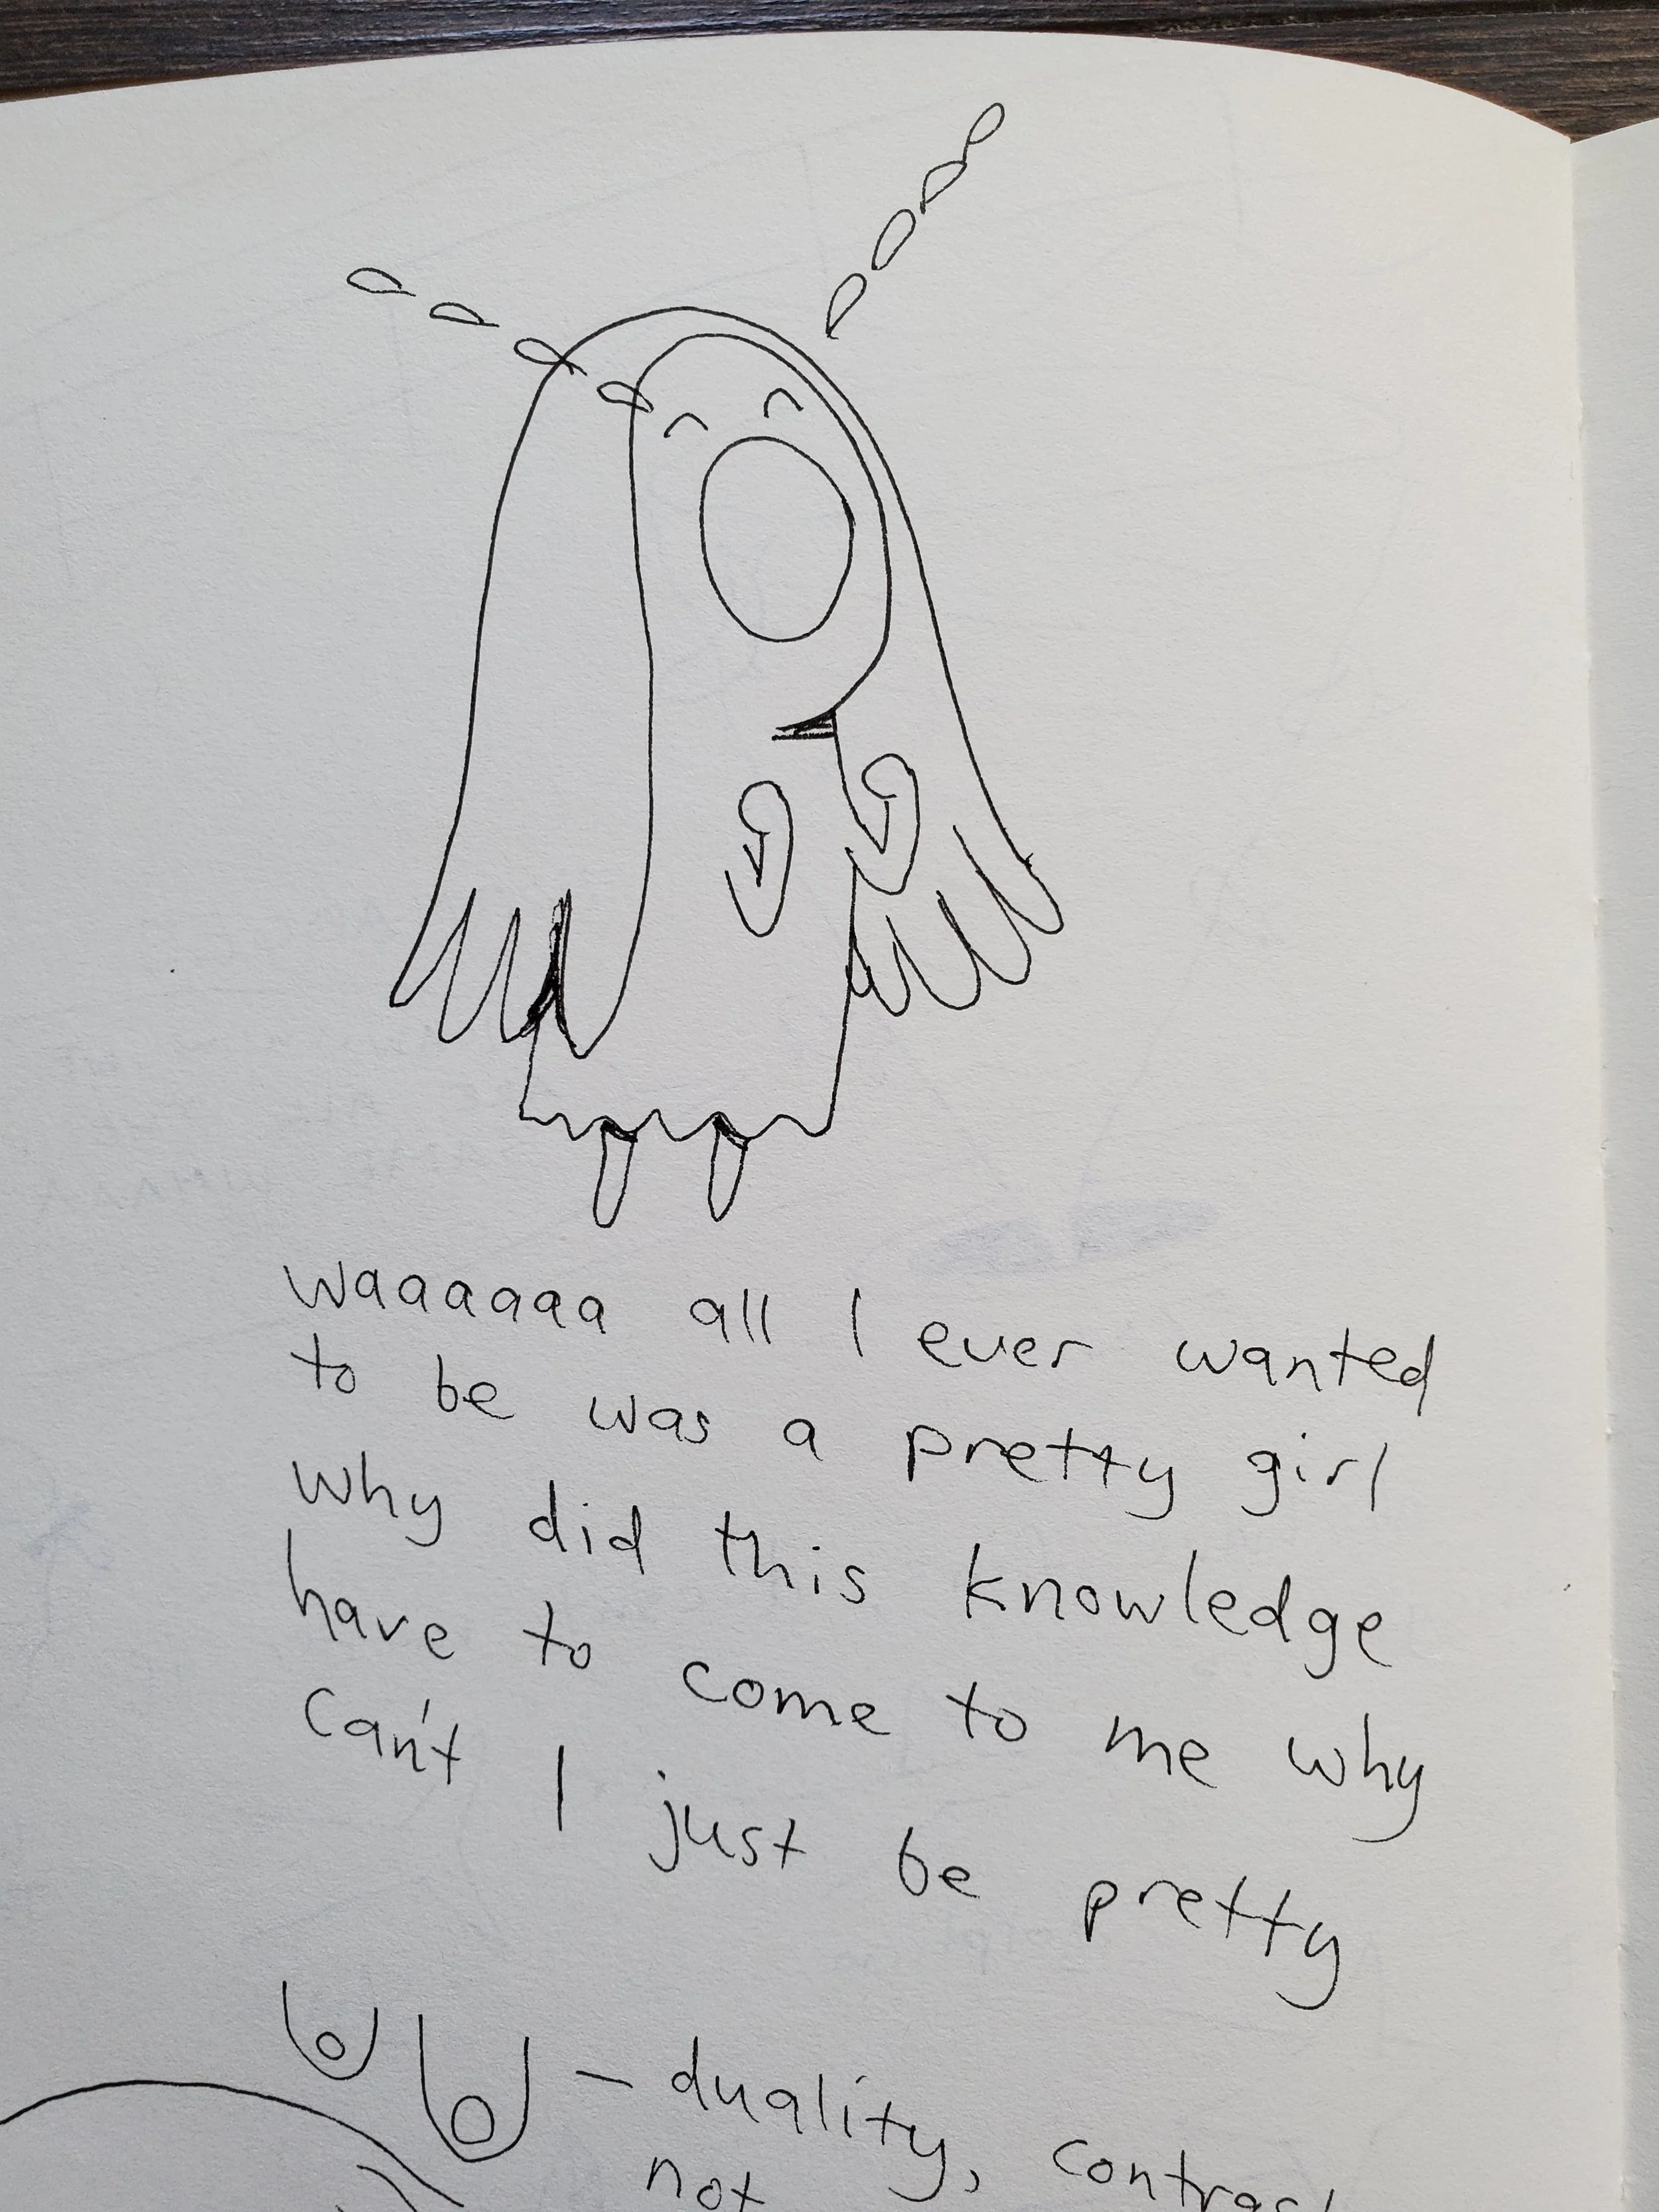 waaaaaa all I ever wanted
to be was a pretty girl
why did this knowledge
have to come to me why
can't I just be pretty
– duality,
not